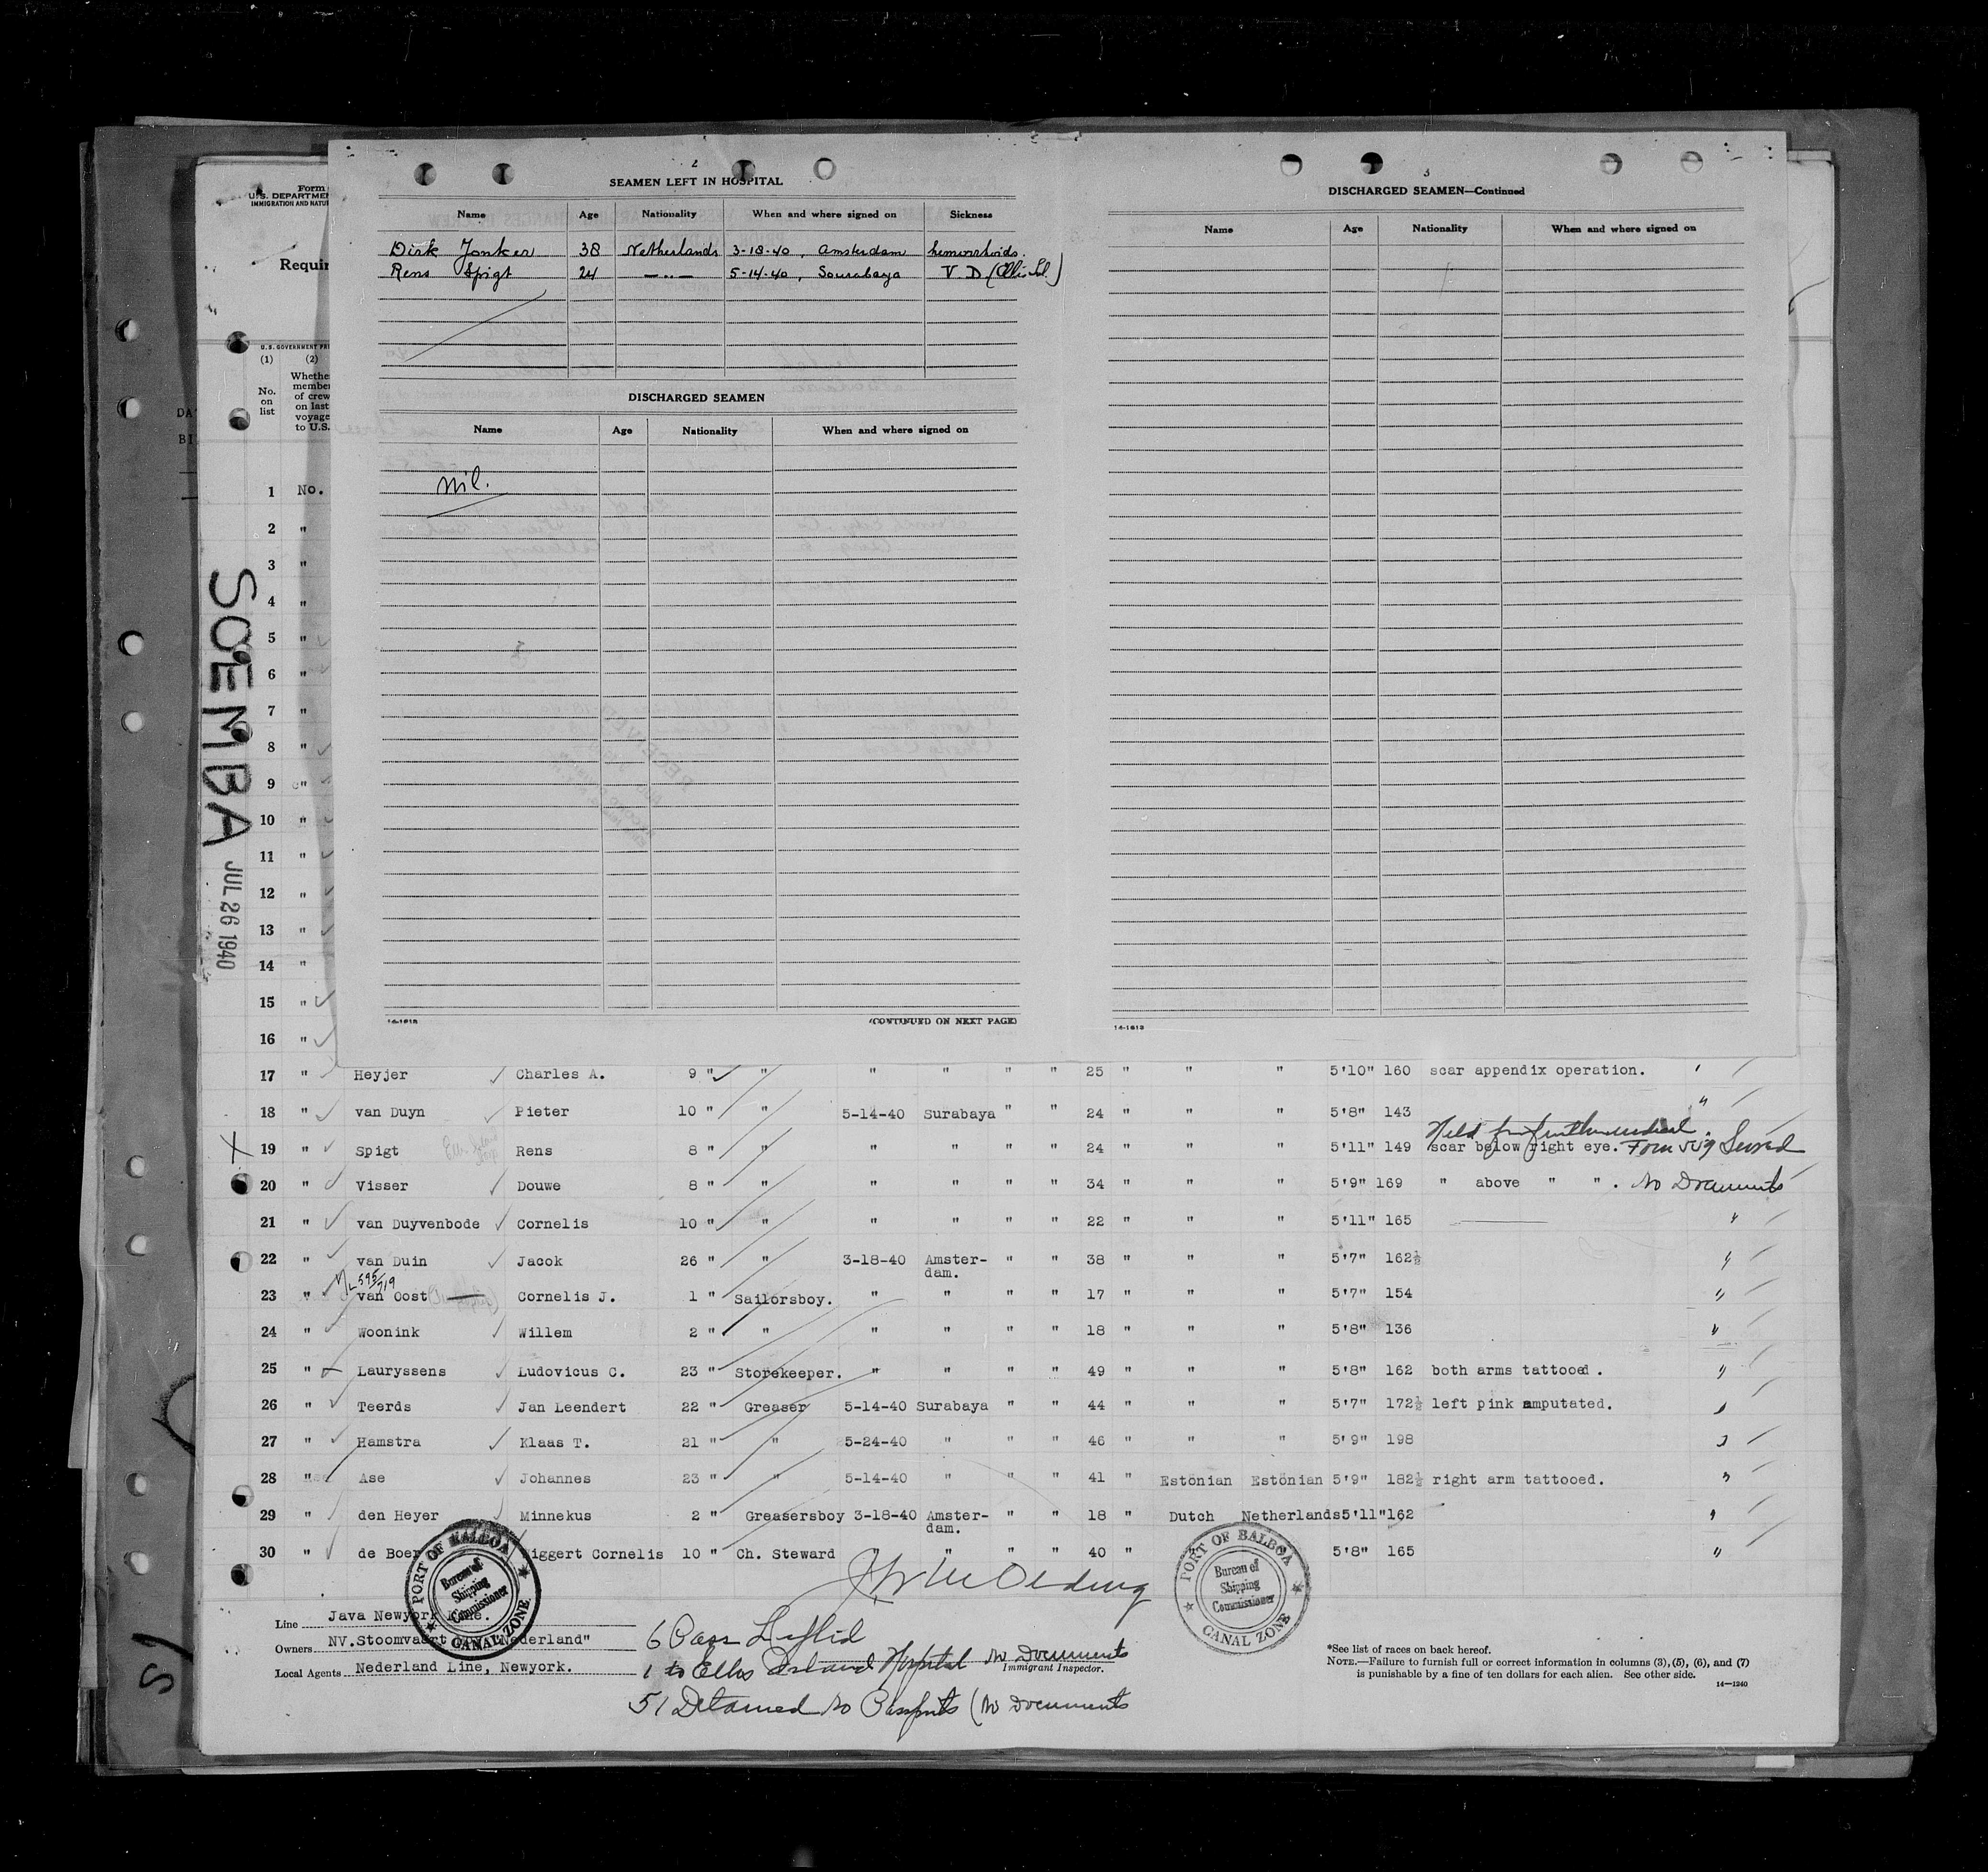 2
SEAMEN LEFT IN HOSPITAL
Name Age Nationality When and where signed on Sickness
Dirk Jonker 38 Netherlands 3-18-40, Amsterdam hemorrhoids.
Rens Spigt 24 —"— 5-14-40, Sourabaya V.D. (Ellis Isl.)
DISCHARGED SEAMEN
Name Age Nationality When and where signed on
nil.
14-1613
(CONTINUED ON NEXT PAGE)
3
DISCHARGED SEAMEN—Continued
Name Age Nationality When and where signed on
14-1613
Form
U.S. DEPARTME
IMMIGRATION AND NATU
Requir
U.S. GOVERNMENT PRI
(1) (2)
No. on list
Whethe
member
of crew
on last
voyage
to U.S.
DA
BI
SOEMBA
JUL 26 1940
1 No.
2 "
3 "
4 "
5 "
6 "
7 "
8 "
9 "
10 "
11 "
12 "
13 "
14 "
15 "
16 "
17 " Heyjer Charles A. 9 " " " " " " 25 " " " 5'10" 160 scar appendix operation. "
18 " van Duyn Pieter 10 " " 5-14-40 Surabaya " " 24 " " " 5'8" 143 "
Held for further medical.
19 " Spigt Rens 8 " " " " " " 24 " " " 5'11" 149 scar below right eye. Form 559 Served
20 " Visser Douwe 8 " " " " " " 34 " " " 5'9" 169 " above " ". No Documents
21 " van Duyvenbode Cornelis 10 " " " " " " 22 " " " 5'11" 165 "
22 " van Duin Jacok 26 " " 3-18-40 Amster-dam. " " 38 " " " 5'7" 162½ "
595/719
23 " van Oost Cornelis J. 1 " Sailorsboy. " " " " 17 " " " 5'7" 154 "
24 " Woonink Willem 2 " " " " " " 18 " " " 5'8" 136 "
25 " Lauryssens Ludovicus C. 23 " Storekeeper. " " " " 49 " " " 5'8" 162 both arms tattooed. "
26 " Teerds Jan Leendert 22 " Greaser 5-14-40 Surabaya " " 44 " " " 5'7" 172½ left pink amputated. "
27 " Hamstra Klaas T. 21 " " 5-24-40 " " " 46 " " " 5'9" 198 "
28 " Ase Johannes 23 " " 5-14-40 " " " 41 " Estonian Estonian 5'9" 182½ right arm tattooed. "
29 " den Heyer Minnekus 2 " Greasersboy 3-18-40 Amster-dam. " " 18 " Dutch Netherlands 5'11" 162 "
30 " de Boer iggert Cornelis 10 " Ch. Steward " " " " 40 " " 5'8" 165 "
PORT OF BALBOA
Bureau of
Shipping
Commissioner
CANAL ZONE
PORT OF BALBOA
Bureau of
Shipping
Commissioner
CANAL ZONE
Line Java Newyork Line.
Owners NV.Stoomvaart "Nederland"
Local Agents Nederland Line, Newyork.
6 Pass
1 to Ellis Island Hospital No Documents
Immigrant Inspector.
51 Detained No Passports (No Documents
*See list of races on back hereof.
NOTE.—Failure to furnish full or correct information in columns (3), (5), (6), and (7)
is punishable by a fine of ten dollars for each alien. See other side.
14—1240